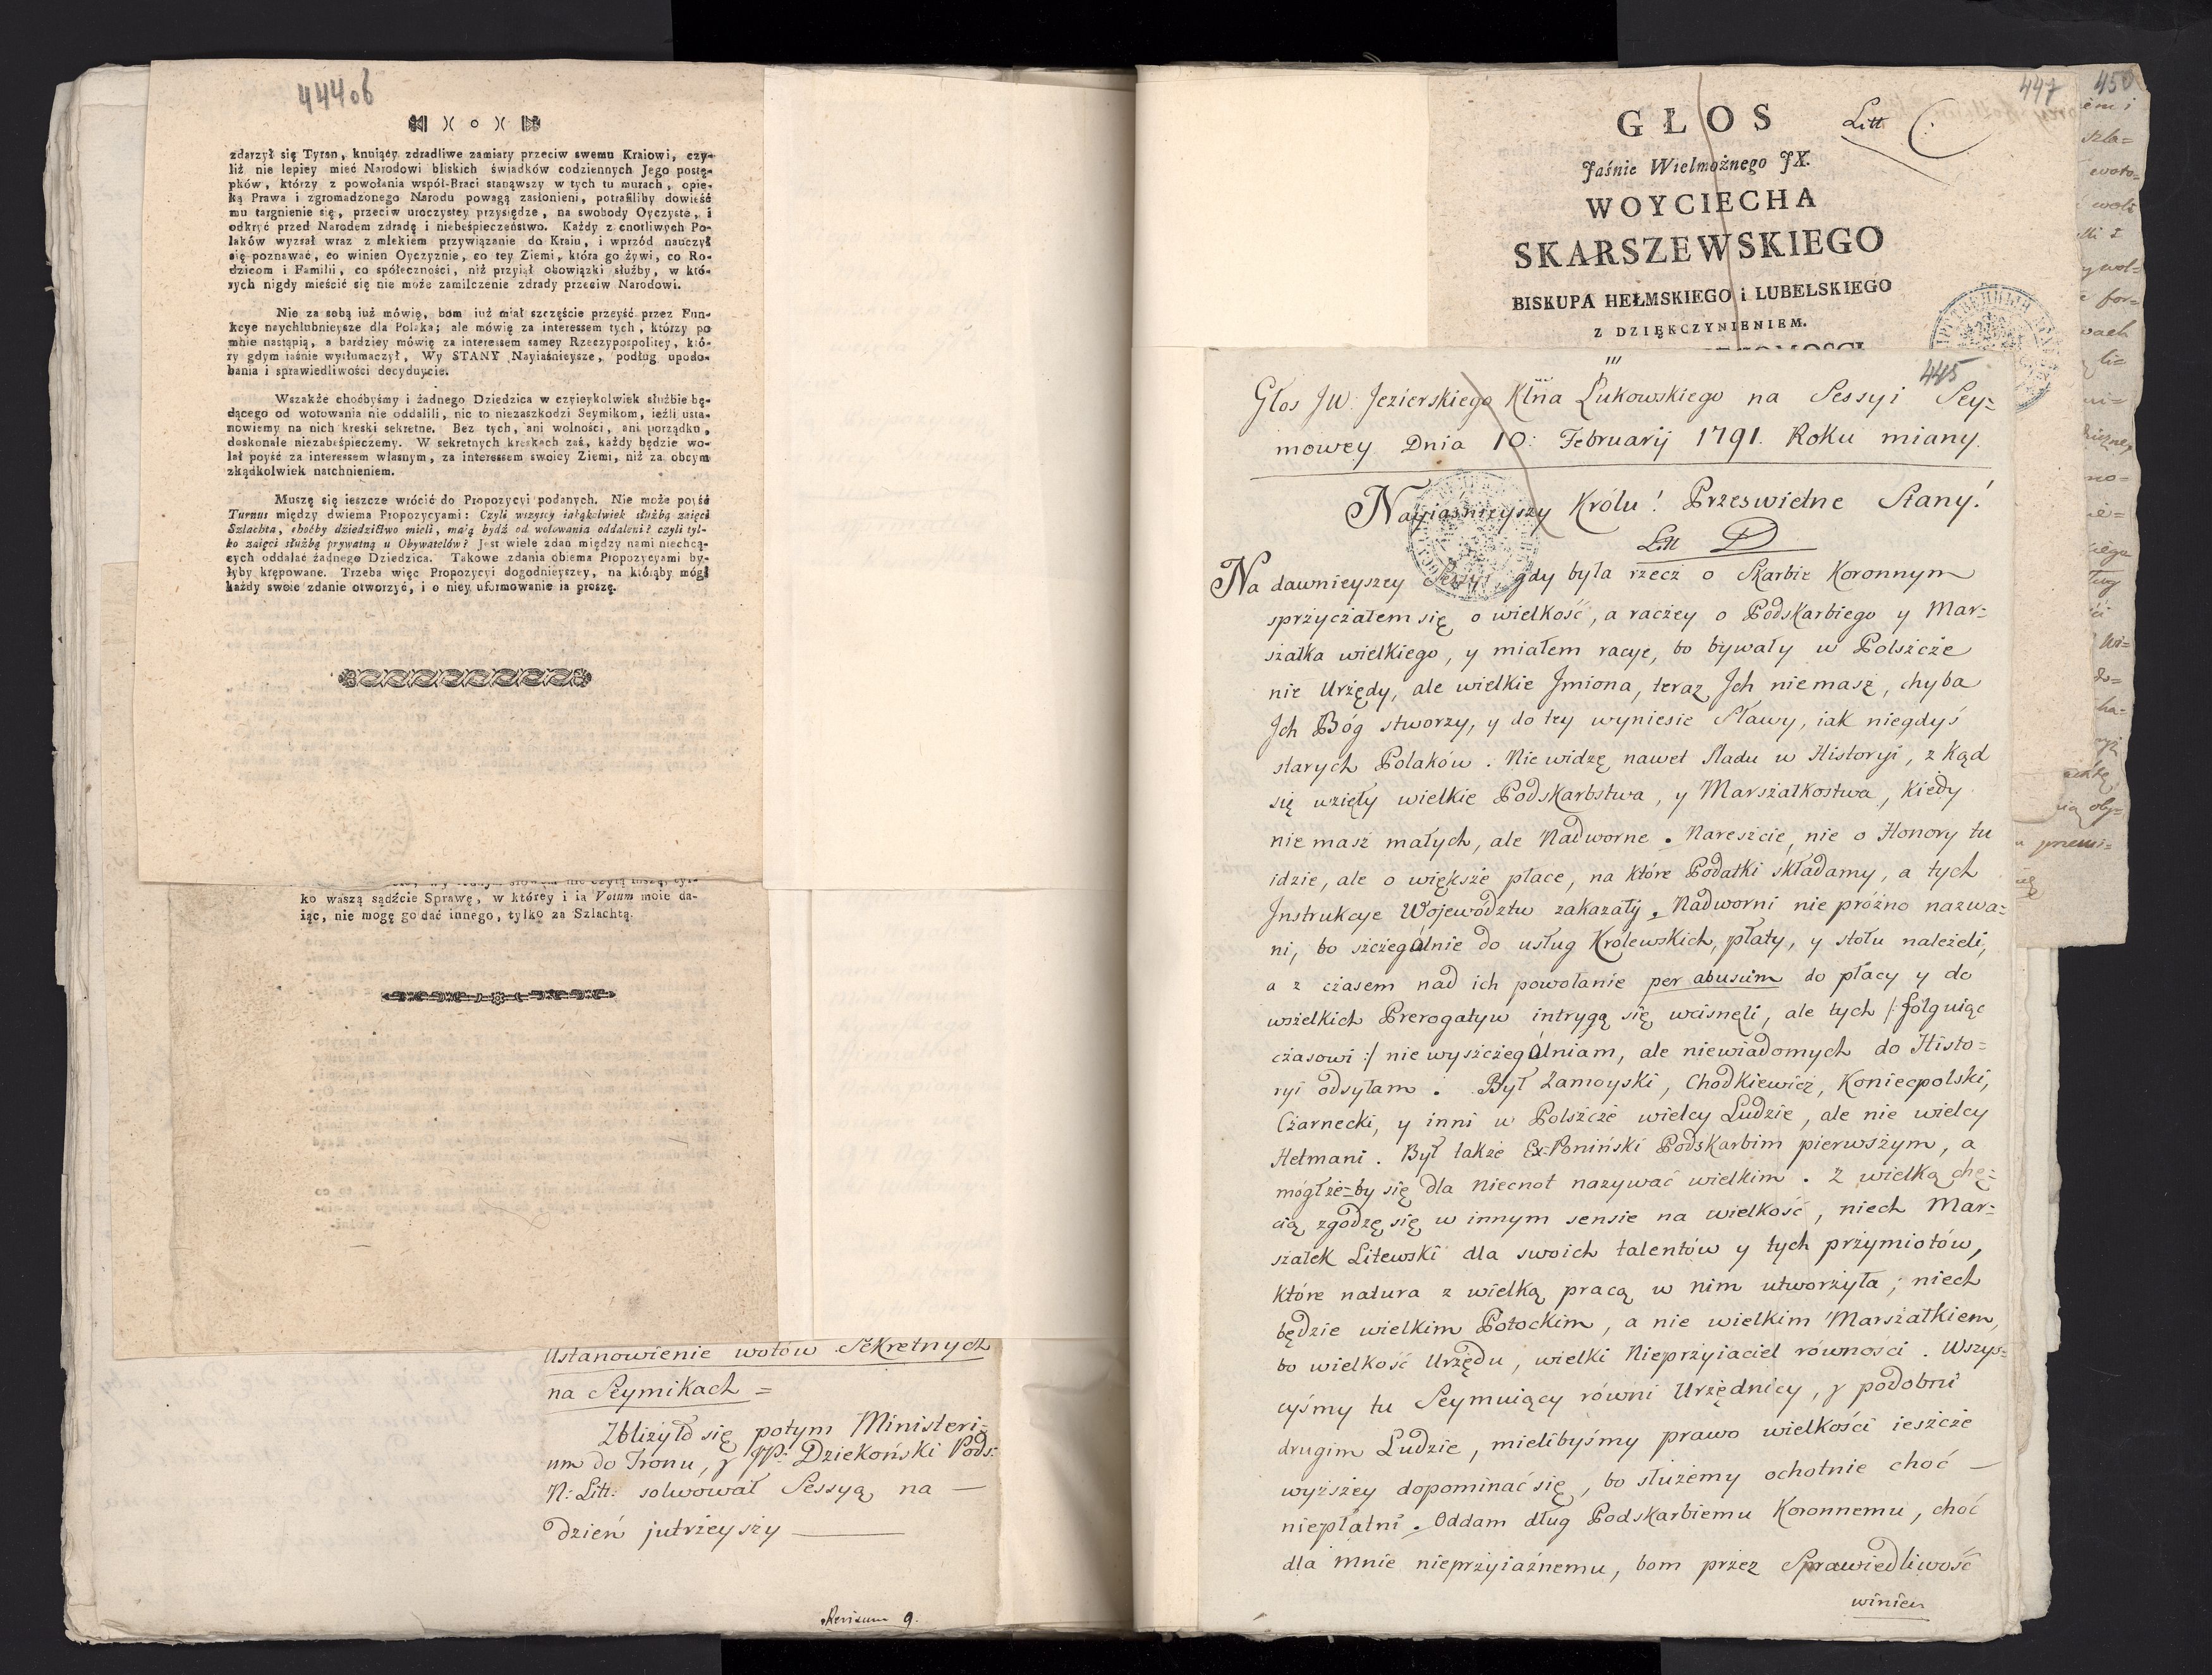 444 o6
zdarzył się Tyran, knuiący zdradliwe zamiary przeciw swemu Kraiowi, czy-
liż nie lepiey mieć Narodowi bliskich świadków codziennych Jego postę-
pków, którzy z powołania wspól-Braci stanąwszy w tych tu murach, opie-
ką Prawa i zgromadzonego Narodu powagą zasłonieni, potrafiliby dowieść
mu targnienie się, przeciw uroczystey przysiędze, na swobody Oyczyste, i
odkryć przed Narodem zdradę i niebeśpieczeństwo. Każdy z cnotliwych Po-
laków wyzsał wraz z mlekiem przywiązanie do Kraiu, i wprzód nauczył
się poznawać, co winien Oyczyznie, co tey Ziemi, która go żywi, co Ro-
dzicom i Familii, co społeczności, niż przyiął obowiązki służby, w któ-
rych nigdy mieścić się nie może zamilczenie zdrady przeciw Narodowi.
Nie za sobą iuż mówię, bom iuż miał szczęście przeyść przez Fun-
kcye naychlubnieysze dla Polaka; ale mówię za interessem tych, którzy po
mnie nastąpią, a bardziey mówię za interessem samey Rzeczypospolitey, któ-
ry gdym iaśnie wytłumaczył, Wy STANY Nayiaśnieysze, podług upodo-
bania i sprawiedliwości decyduycie.
Wszakże choćbyśmy i żadnego Dziedzica w czyieykolwiek służbie bę-
dącego od wotowania nie oddalili, nic to niezaszkodzi Seymikom, ieźli usta-
nowiemy na nich kreski sekretne. Bez tych, ani wolności, ani porządku,
doskonale niezabeśpieczemy. W sekretnych kreskach zaś, każdy będzie wo-
lał poyść za interessem własnym, za interessem swoiey Ziemi, niż za obcym
zkądkolwiek natchnieniem.
Muszę się ieszcze wrócić do Propozycyi podanych. Nie może poyść
Turnus między dwiema Propozycyami: Czyli wszyscy iakąkolwiek służbą zaięci
Szlachta, choćby dziedzictwo mieli, maią bydź od wotowania oddaleni? czyli tyl-
ko zaięci służbą prywatną u Obywatelów? Jest wiele zdań między nami niechcą-
cych oddalać żadnego Dziedzica. Takowe zdania obiema Propozycyami by-
łyby krępowane. Trzeba więc Propozycyi dogodnieyszey, na którąby mógł
każdy swoie zdanie otworzyć, i o niey uformowanie ia proszę.
ko waszą sądźcie Sprawę, w którey i ia Votum moie da-
iąc, nie mogę go dać innego, tylko za Szlachtą.
Ustanowienie wotow Sekretnych
na Seymikach =
Zbliżyło się potym Ministeri-
um do Tronu, y JP: Dziekoński Pods:
N: Litt: solwował Sessyą na —
dzień jutrzeyszy —
Revisum 9.
447
450
GŁOS
Litt C
Jaśnie Wielmożnego JX.
WOYCIECHA
SKARSZEWSKIEGO
BISKUPA HEŁMSKIEGO i LUBELSKIEGO
Z DZIĘKCZYNIENIEM.
445
Głos JW: Jezierskiego Kłna Łukowskiego na Sessyi Sey-
mowey Dnia 10: Februarij 1791. Roku miany.
Nayiaśnieyszy Królu! Prześwietne Stany!
Litt D
Na dawnieyszey Sessyi gdy była rzecz o Skarbie Koronnym
sprzyczałem się o wielkość, a raczey o Podskarbiego y Mar-
szałka wielkiego, y miałem racye, bo bywały w Polszcze
nie Urzędy, ale wielkie Jmiona, teraz Jch niemasz, chyba
Jch Bóg stworzy, y do tey wyniesie Sławy, iak niegdyś
starych Polaków. Nie widzę nawet sladu w Historyi, z kąd
się wzięły wielkie Podskarbstwa, y Marszałkostwa, Kiedy
nie masz małych, ale Nadworne. Nareszcie, nie o Honory tu
idzie, ale o większe płace, na które Podatki składamy, a tych
Jnstrukcye Wojewodztw zakazały. Nadworni nie próżno nazwa-
ni, bo szczególnie do usług Królewskich, płaty, y stołu należeli,
a z czasem nad ich powołanie per abusum do płacy y do
wszelkich Prerogatyw intrygą się wcisnęli, ale tych /: folguiąc
czasowi :/ nie wyszczególniam, ale niewiadomych do Histo-
ryi odsyłam. Był Zamoyski, Chodkiewicz, Koniecpolski,
Czarnecki, y inni w Polszcze wielcy Ludzie, ale nie wielcy
Hetmani. Był także Ex-Poniński Podskarbim pierwszym, a
mógłże-by się dla niecnot nazywać wielkim. Z wielką chę-
cią zgodzę się w innym sensie na wielkość, niech Mar-
szałek Litewski dla swoich talentów y tych przymiotów,
które natura z wielką pracą w nim utworzyła; niech
będzie wielkim Potockim, a nie wielkim Marszałkiem,
bo wielkość Urzędu, wielki Nieprzyiaciel równości. Wszys-
cyśmy tu Seymuiący równi Urzędnicy, y podobni
drugim Ludzie, mielibyśmy prawo wielkości ieszcze
wyższey dopominać się, bo służemy ochotnie choć —
niepłatni. Oddam dług Podskarbiemu Koronnemu, choć
dla mnie nieprzyiaźnemu, bom przez Sprawiedliwość
winien